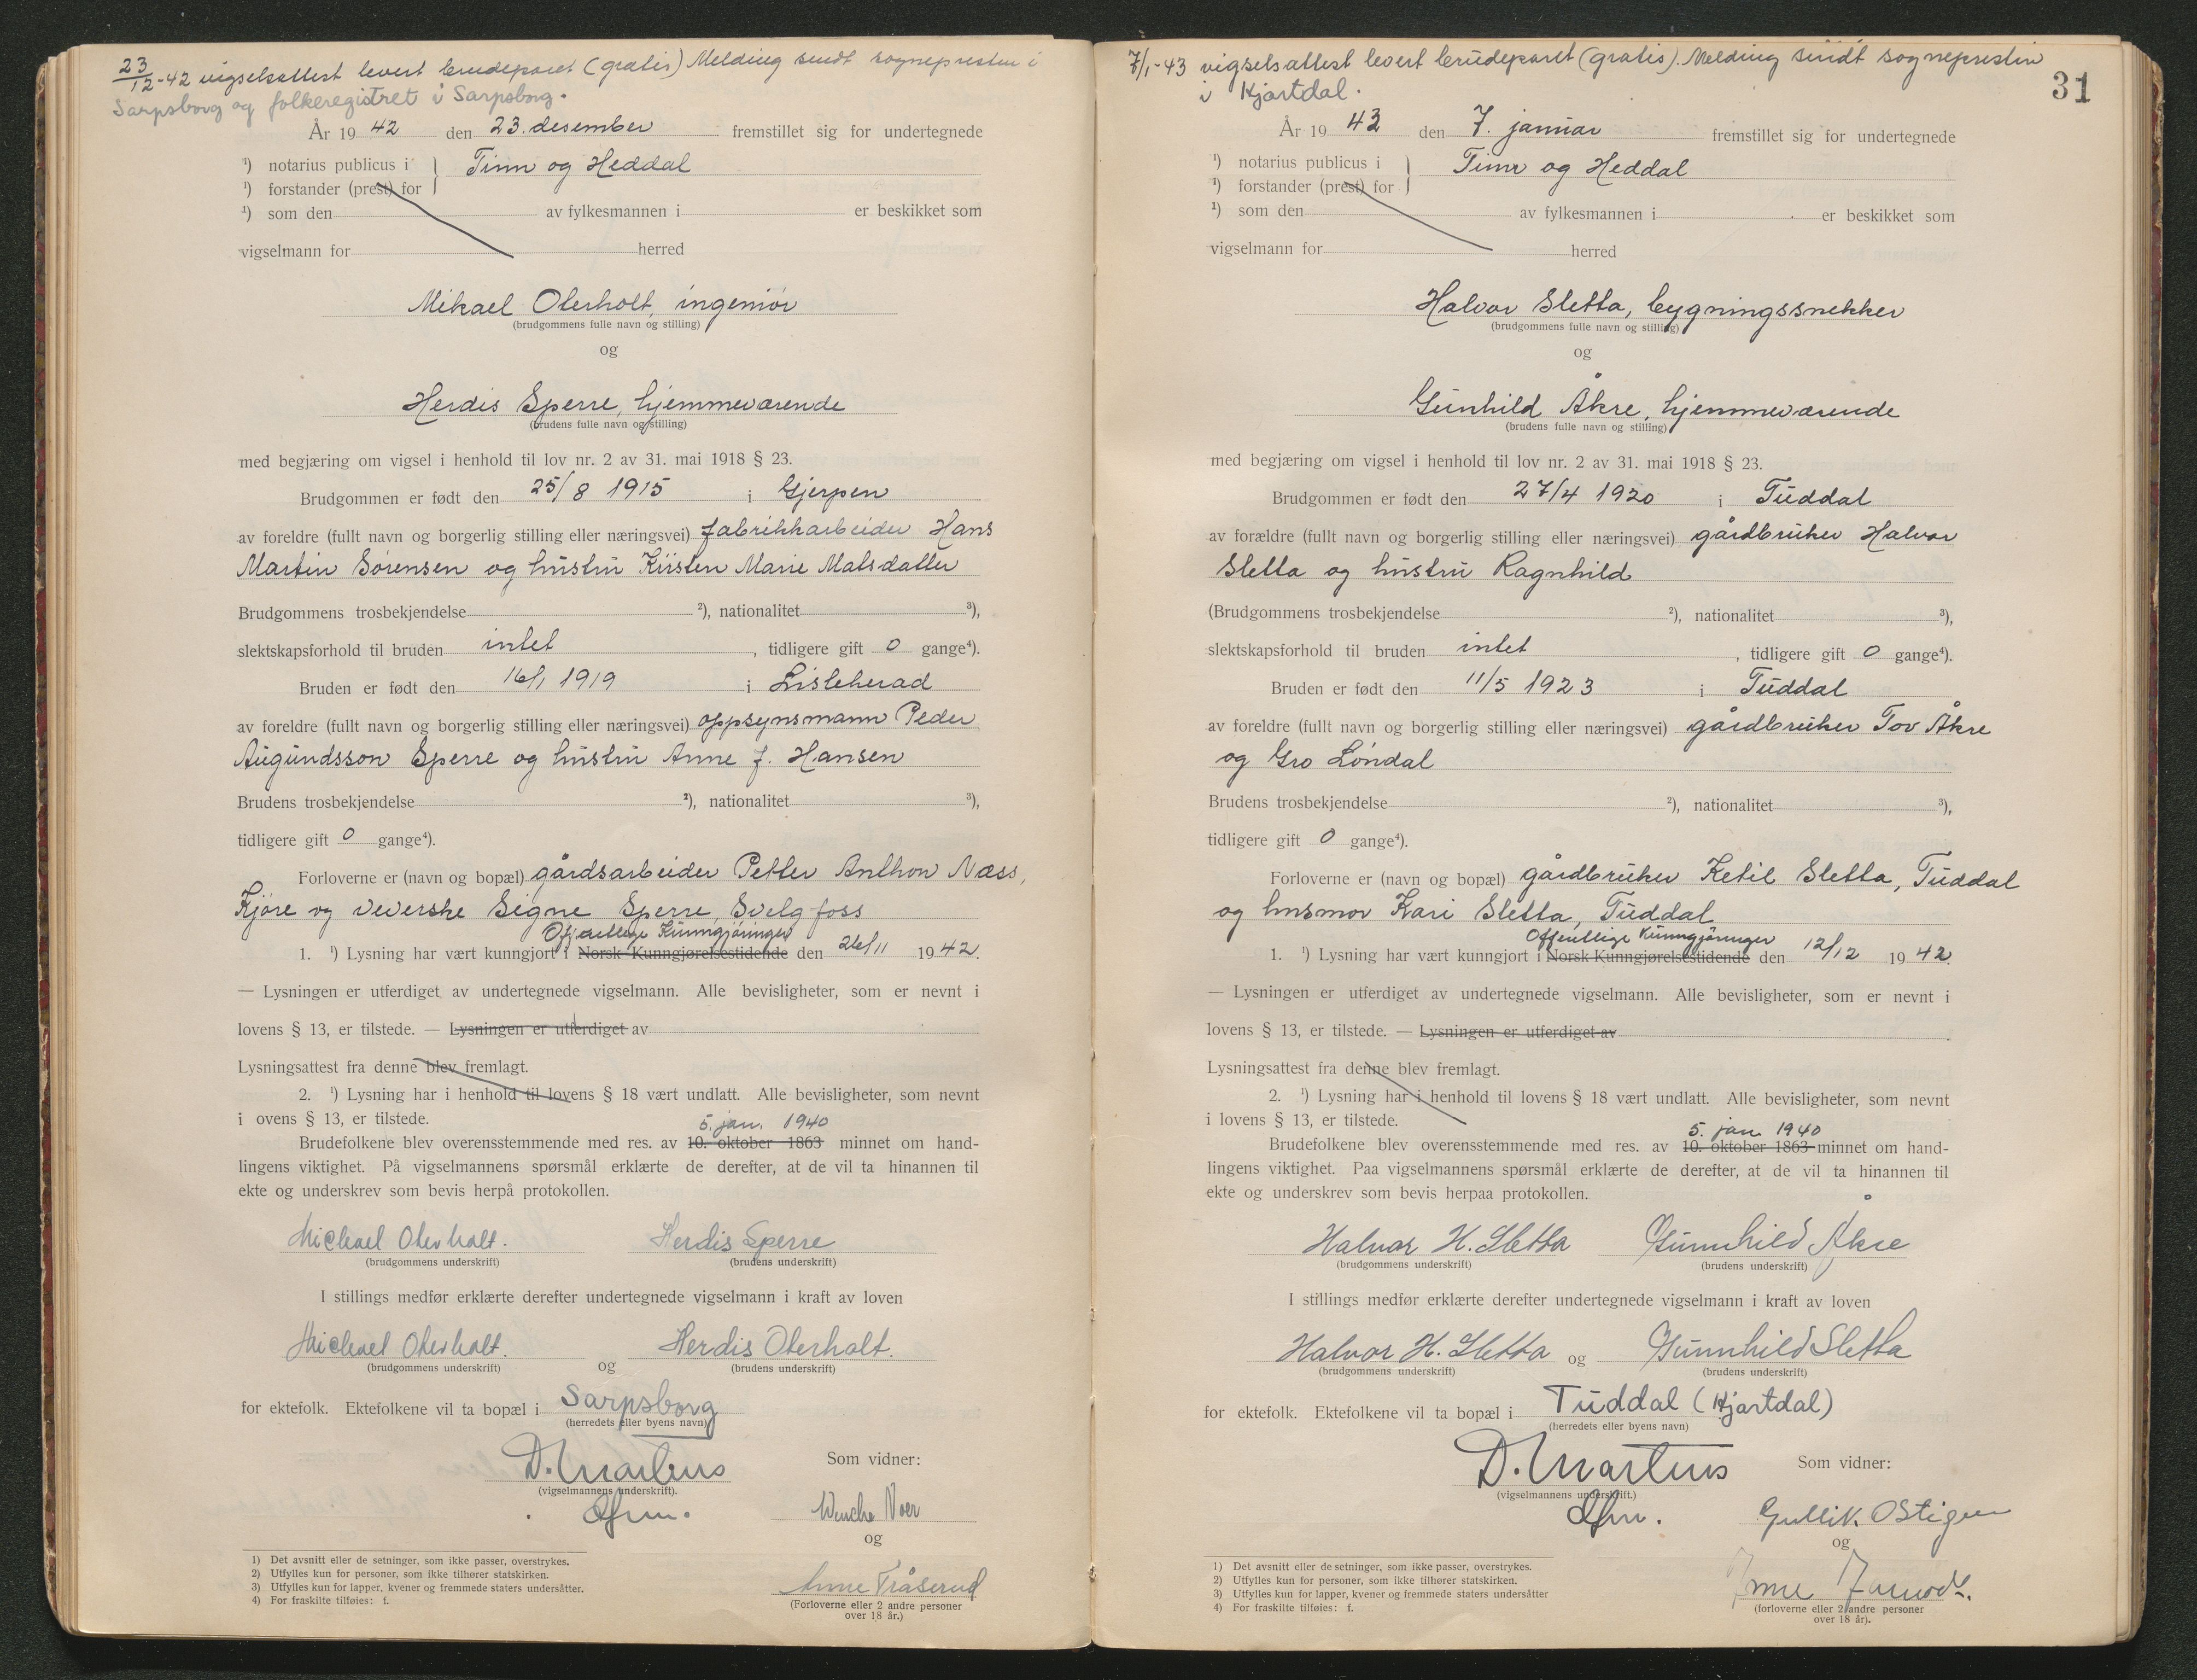 23/12-42 vigselsattest levert brudeparet (gratis) Melding sendt sognepresten i
Sarpsborg og folkeregistret i Sarpsborg.
År 19 42 den 23. desember fremstillet sig for undertegnede
¹) notarius publicus i } Tinn og Heddal
¹) forstander (prest) for
¹) som den av fylkesmannen i er beskikket som
vigselmann for herred
Mikael Oterholt, ingeniør
(brudgommens fulle navn og stilling)
og
Herdis Sperre, hjemmeværende
(brudens fulle navn og stilling)
med begjæring om vigsel i henhold til lov nr. 2 av 31. mai 1918 § 23.
Brudgommen er født den 25/8 1915 i Gjerpen
av foreldre (fullt navn og borgerlig stilling eller næringsvei) fabrikkarbeider Hans
Martin Sørensen og hustru Kirsten Marie Matsdatter
Brudgommens trosbekjendelse ²), nationalitet ³),
slektskapsforhold til bruden intet , tidligere gift 0 gange⁴).
Bruden er født den 16/1 1919 i Lisleherad
av foreldre (fullt navn og borgerlig stilling eller næringsvei) oppsynsmann Peder
Augundsson Sperre og hustru Anne J. Hansen
Brudens trosbekjendelse ²), nationalitet ³),
tidligere gift 0 gange⁴).
Forloverne er (navn og bopæl) gårdsarbeider Petter Anthon Næss,
Kjøre og veverske Signe Sperre, Svelgfoss
Offentlige Kunngjøringer
1. ¹) Lysning har vært kunngjort i Norsk Kunngjørelsestidende den 26/11 1942.
— Lysningen er utferdiget av undertegnede vigselmann. Alle bevisligheter, som er nevnt i
lovens § 13, er tilstede. — Lysningen er utferdiget av
Lysningsattest fra denne blev fremlagt.
2. ¹) Lysning har i henhold til lovens § 18 vært undlatt. Alle bevisligheter, som nevnt
i ovens § 13, er tilstede.
5. jan. 1940
Brudefolkene blev overensstemmende med res. av 10. oktober 1863 minnet om hand-
lingens viktighet. På vigselmannens spørsmål erklærte de derefter, at de vil ta hinannen til
ekte og underskrev som bevis herpå protokollen.
Michael Oterholt. Herdis Sperre
(brudgommens underskrift) (brudens underskrift)
I stillings medfør erklærte derefter undertegnede vigselmann i kraft av loven
Michael Oterholt. og Herdis Oterholt.
(brudgommens underskrift) (brudens underskrift)
for ektefolk. Ektefolkene vil ta bopæl i Sarpsborg
(herredets eller byens navn)
D. Martens Som vidner:
(vigselmannens underskrift).
Wenche Noer
og
Anne Fråserud
(Forloverne eller 2 andre personer
over 18 år.)
1) Det avsnitt eller de setninger, som ikke passer, overstrykes.
2) Utfylles kun for personer, som ikke tilhører statskirken.
3) Utfylles kun for lapper, kvener og fremmede staters undersåtter.
4) For fraskilte tilføies: f.
7/1-43 vigselsattest levert brudeparet (gratis). Melding sendt sognepresten
i Hjartdal.
31
År 19 43 den 7. januar fremstillet sig for undertegnede
¹) notarius publicus i } Tinn og Heddal
¹) forstander (prest) for
¹) som den av fylkesmannen i er beskikket som
vigselmann for herred
Halvor Sletta, bygningssnekker
(brudgommens fulle navn og stilling)
og
Gunhild Åkre, hjemmeværende
(brudens fulle navn og stilling)
med begjæring om vigsel i henhold til lov nr. 2 av 31. mai 1918 § 23.
Brudgommen er født den 27/4 1920 i Tuddal
av forældre (fullt navn og borgerlig stilling eller næringsvei) gårdbruker Halvor
Sletta og hustru Ragnhild
(Brudgommens trosbekjendelse ²), nationalitet ³),
slektskapsforhold til bruden intet , tidligere gift 0 gange⁴).
Bruden er født den 11/5 1923 i Tuddal
av foreldre (fullt navn og borgerlig stilling eller næringsvei) gårdbruker Tov Åkre
og Gro Løndal
Brudens trosbekjendelse ²), nationalitet ³),
tidligere gift 0 gange⁴).
Forloverne er (navn og bopæl) gårdbruker Ketil Sletta, Tuddal
og husmor Kari Sletta, Tuddal
Offentlige Kunngjøringer
1. ¹) Lysning har vært kunngjort i Norsk Kunngjørelsestidende den 12/12 1942.
— Lysningen er utferdiget av undertegnede vigselmann. Alle bevisligheter, som er nevnt i
lovens § 13, er tilstede. — Lysningen er utferdiget av
Lysningsattest fra denne blev fremlagt.
2. ¹) Lysning har i henhold til lovens § 18 vært undlatt. Alle bevisligheter, som nevnt
i lovens § 13, er tilstede.
5. jan 1940
Brudefolkene blev overensstemmende med res. av 10. oktober 1863 minnet om hand-
lingens viktighet. Paa vigselmannens spørsmål erklærte de derefter, at de vil ta hinannen til
ekte og underskrev som bevis herpaa protokollen.
Halvor H. Sletta Gunnhild Åkre
(brudgommens underskrift) (brudens underskrift)
I stillings medfør erklærte derefter undertegnede vigselmann i kraft av loven
Halvor H. Sletta og Gunnhild Sletta
(brudgommens underskrift) (brudens underskrift)
for ektefolk. Ektefolkene vil ta bopæl i Tuddal (Hjartdal)
(herredets eller byens navn)
D. Martens Som vidner:
(vigselmannens underskrift.)
Gullik Ostigen
og
(forloverne eller 2 andre personer
over 18 år).
1) Det avsnitt eller de setninger, som ikke passer, overstrykes.
2) Utfylles kun for personer, som ikke tilhører statskirken.
3) Utfylles kun for lapper, kvener og fremmede staters undersåtter
4) For fraskilte tilføies: f.